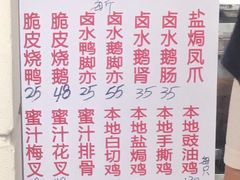 每斤
脆皮烧鸭 25
脆皮烧鹅 48
卤水鸭脚亦 25
卤水鹅脚亦 55
卤水鹅肾 35
卤水鹅肠 35
盐焗凤爪
蜜汁梅叉
蜜汁花叉
蜜汁排骨
本地白切鸡
本地盐焗鸡
本地手撕鸡
本地豉油鸡
每只